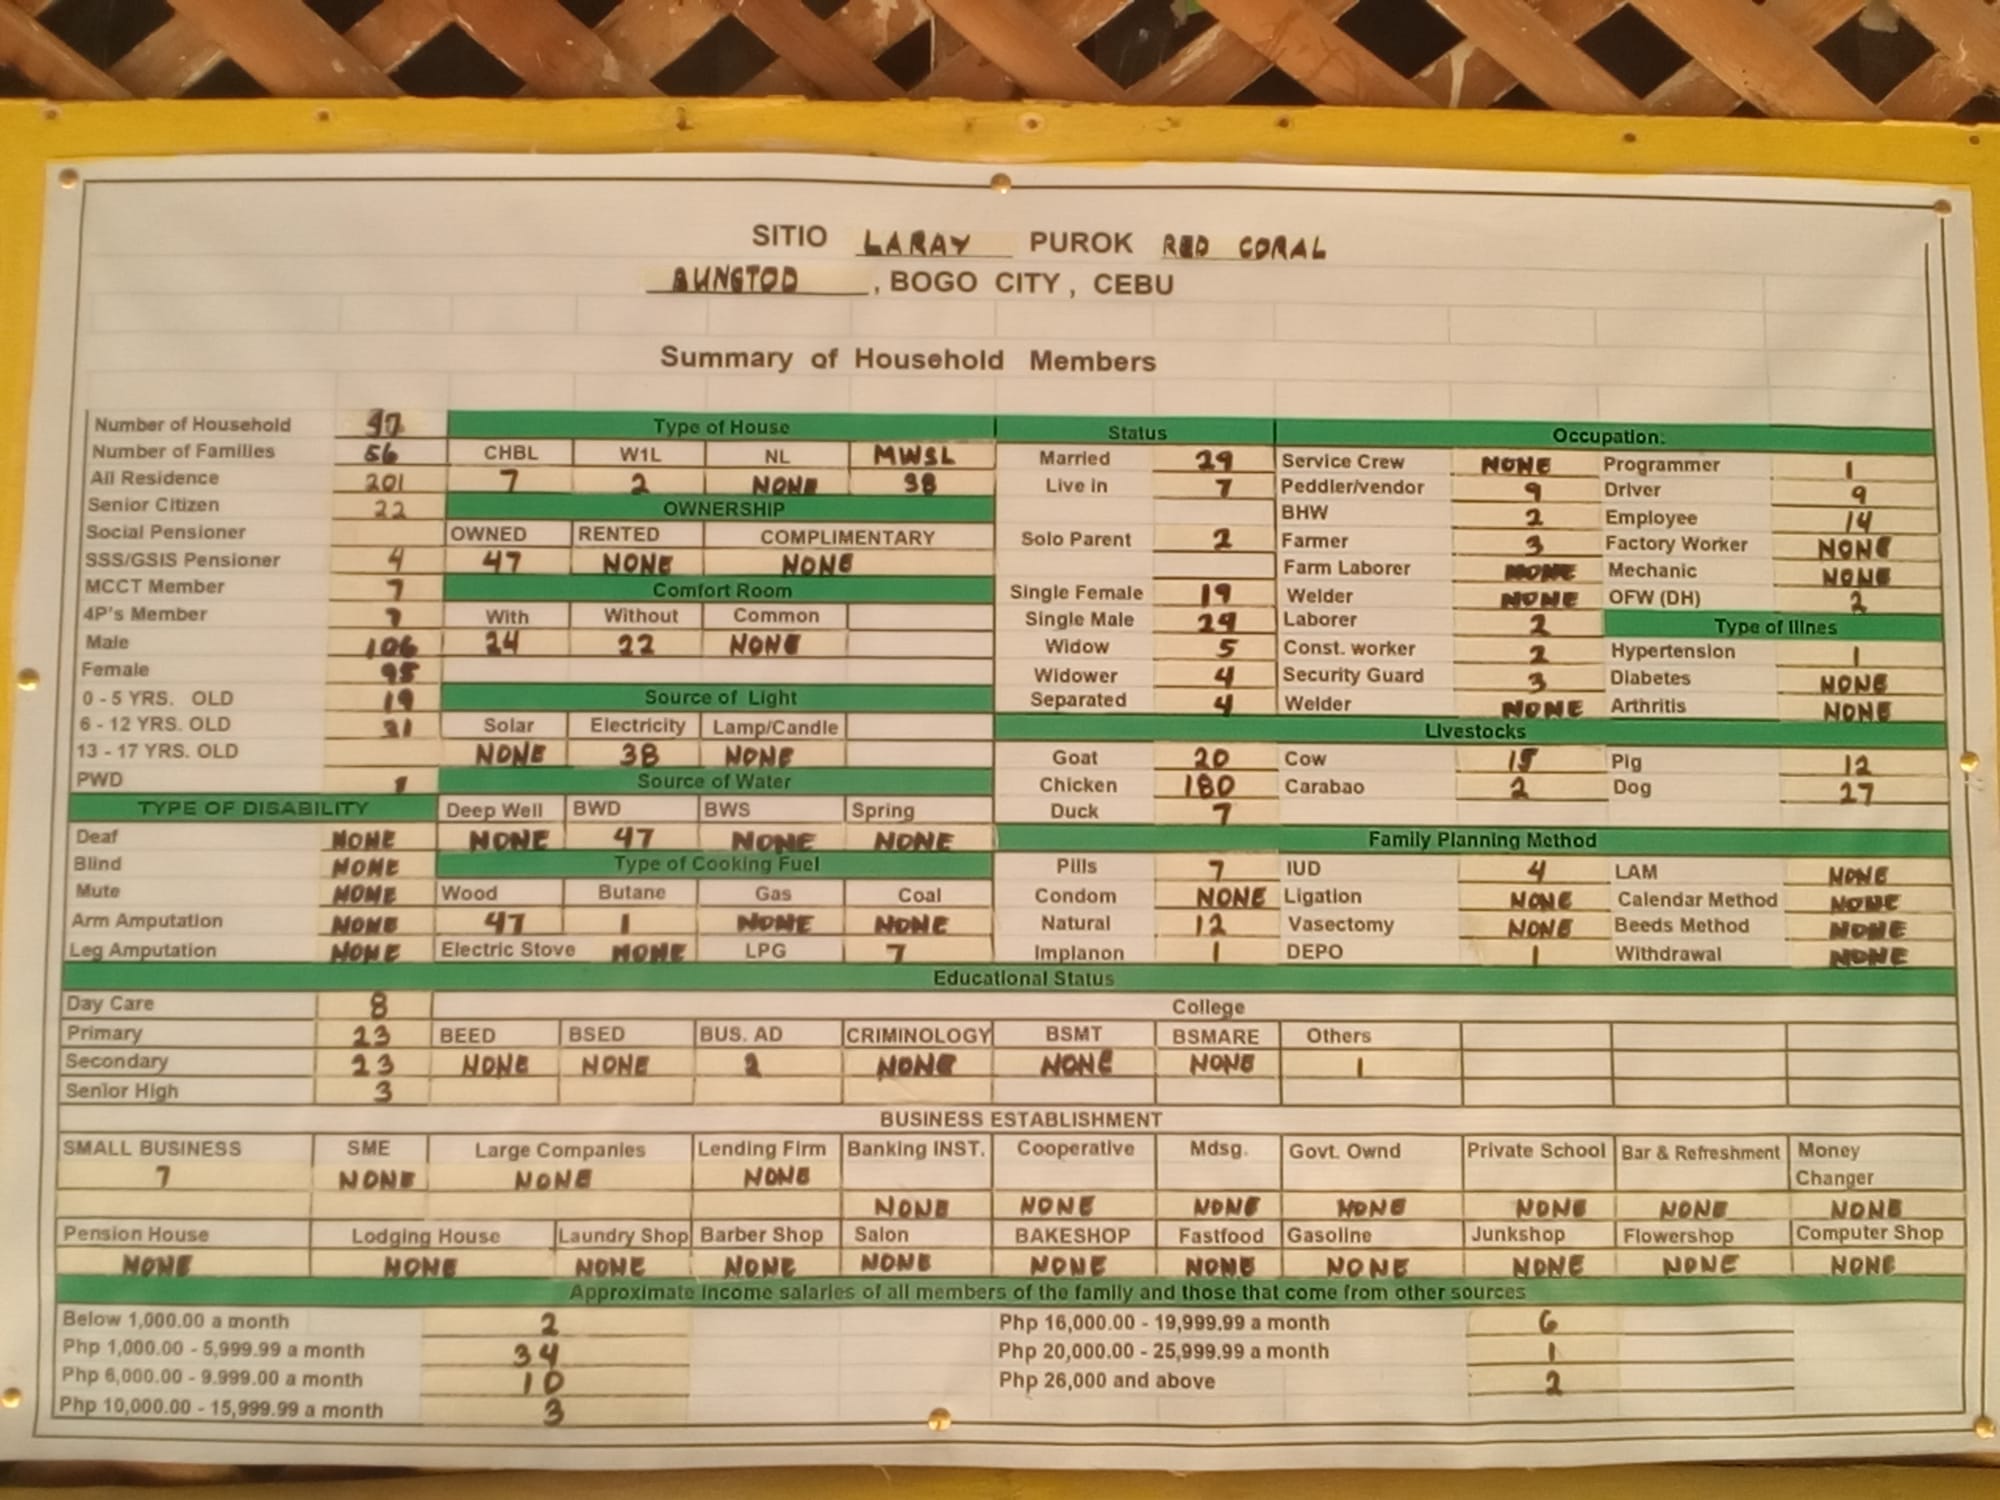 SITIO LARAY PUROK RED CORAL
BUNGTOD, BOGO CITY, CEBU
Summary of Household Members
Number of Household 47 Type of House Status Occupation:
Number of Families 56 CHBL W1L NL MWSL Married 29 Service Crew NONE Programmer 1
All Residence 201 7 2 NONE 38 Live in 7 Peddler/vendor 9 Driver 9
Senior Citizen 22 OWNERSHIP BHW 2 Employee 14
Social Pensioner OWNED RENTED COMPLIMENTARY Solo Parent 2 Farmer 3 Factory Worker NONE
SSS/GSIS Pensioner 4 47 NONE NONE Farm Laborer NONE Mechanic NONE
MCCT Member 7 Comfort Room Single Female 19 Welder NONE OFW (DH) 2
4P's Member 7 With Without Common Single Male 29 Laborer 2 Type of Illnes
Male 106 24 22 NONE Widow 5 Const. worker 2 Hypertension 1
Female 95 Widower 4 Security Guard 3 Diabetes NONE
0 - 5 YRS. OLD 19 Source of Light Separated 4 Welder NONE Arthritis NONE
6 - 12 YRS. OLD Solar Electricity Lamp/Candle Livestocks
13 - 17 YRS. OLD NONE 38 NONE Goat 20 Cow 15 Pig 12
PWD 1 Source of Water Chicken 180 Carabao 2 Dog 27
TYPE OF DISABILITY Deep Well BWD BWS Spring Duck 7
Deaf NONE NONE 47 NONE NONE Family Planning Method
Blind NONE Type of Cooking Fuel Pills 7 IUD 4 LAM NONE
Mute NONE Wood Butane Gas Coal Condom NONE Ligation NONE Calendar Method NONE
Arm Amputation NONE 47 1 NONE NONE Natural 12 Vasectomy NONE Beeds Method NONE
Leg Amputation NONE Electric Stove NONE LPG 7 Implanon 1 DEPO 1 Withdrawal NONE
Educational Status
Day Care 8 College
Primary 23 BEED BSED BUS. AD CRIMINOLOGY BSMT BSMARE Others
Secondary 23 NONE NONE 2 NONE NONE NONE 1
Senior High 3
BUSINESS ESTABLISHMENT
SMALL BUSINESS SME Large Companies Lending Firm Banking INST. Cooperative Mdsg. Govt. Ownd Private School Bar & Refreshment Money Changer
7 NONE NONE NONE
NONE NONE NONE NONE NONE NONE NONE
Pension House Lodging House Laundry Shop Barber Shop Salon BAKESHOP Fastfood Gasoline Junkshop Flowershop Computer Shop
NONE NONE NONE NONE NONE NONE NONE NONE NONE NONE NONE
Approximate income salaries of all members of the family and those that come from other sources
Below 1,000.00 a month 2 Php 16,000.00 - 19,999.99 a month 6
Php 1,000.00 - 5,999.99 a month 34 Php 20,000.00 - 25,999.99 a month 1
Php 6,000.00 - 9.999.00 a month 10 Php 26,000 and above 2
Php 10,000.00 - 15,999.99 a month 3